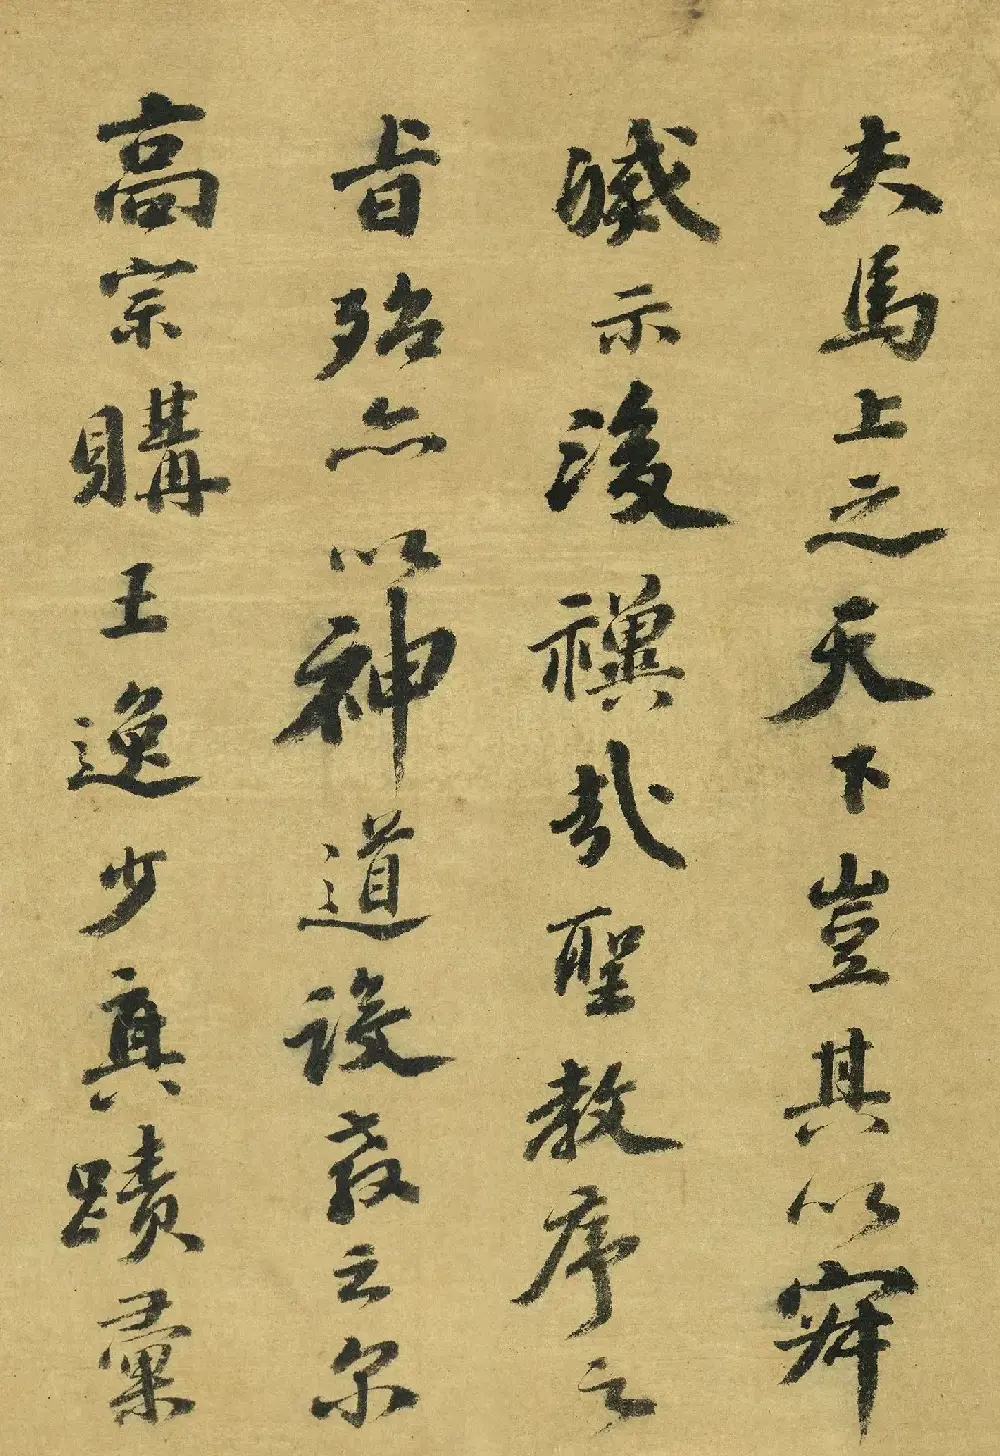 夫馬上之天下豈其以寂
滅示後禩哉聖教序之
旨殆亦以神道設教之尔
高宗購王逸少真蹟彙